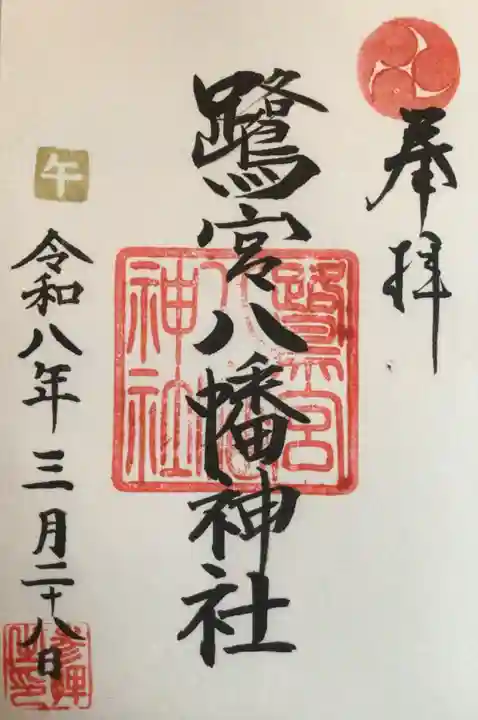 奉拝
鷺宮八幡神社
鷺宮
八幡
神社
午
令和八年三月二十八日